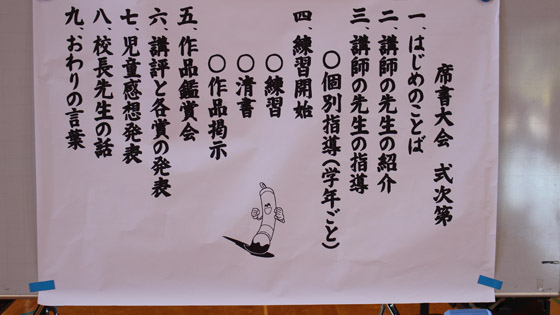 席書大会 式次第
一、はじめのことば
二、講師の先生の紹介
三、講師の先生の指導
○個別指導(学年ごと)
四、練習開始
○練習
○清書
○作品掲示
五、作品鑑賞会
六、講評と各賞の発表
七、児童感想発表
八、校長先生の話
九、おわりの言葉